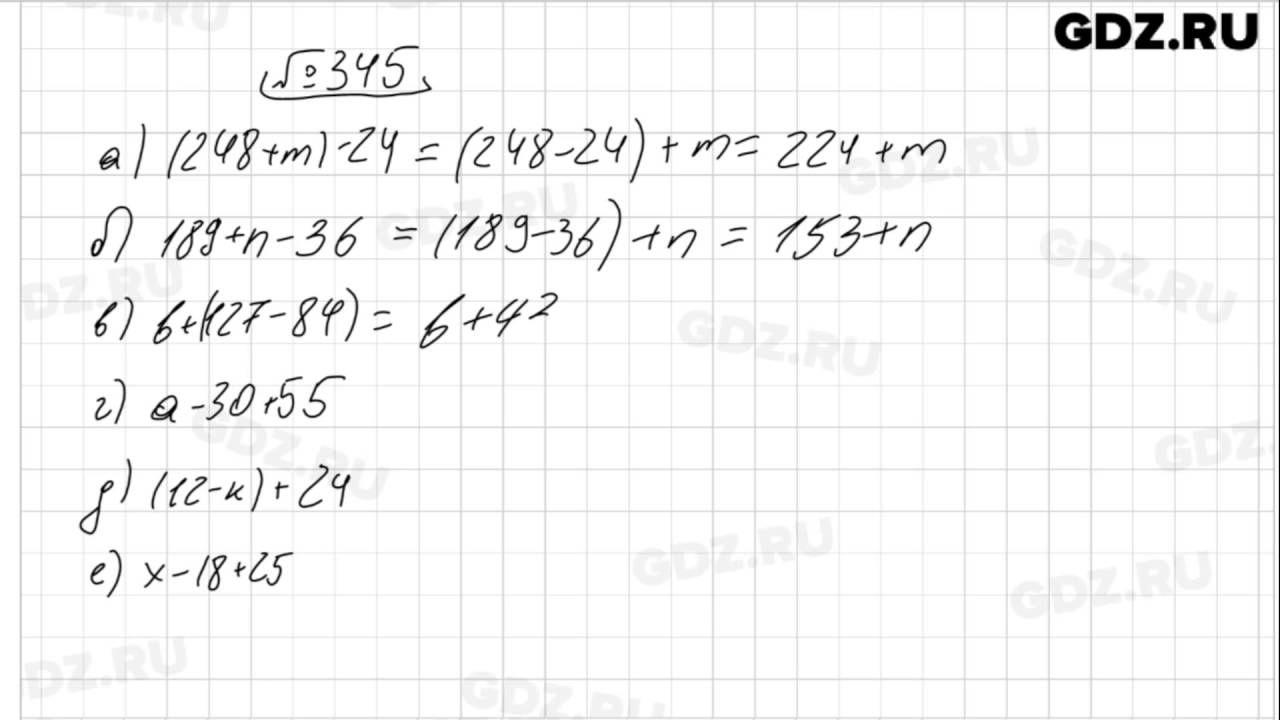 GDZ.RU
№345
а) (248+m)-24 = (248-24)+m = 224+m
б) 189+n-36 = (189-36)+n = 153+n
в) b+(127-84) = b+42
г) a-30+55
д) (12-k)+24
е) x-18+25